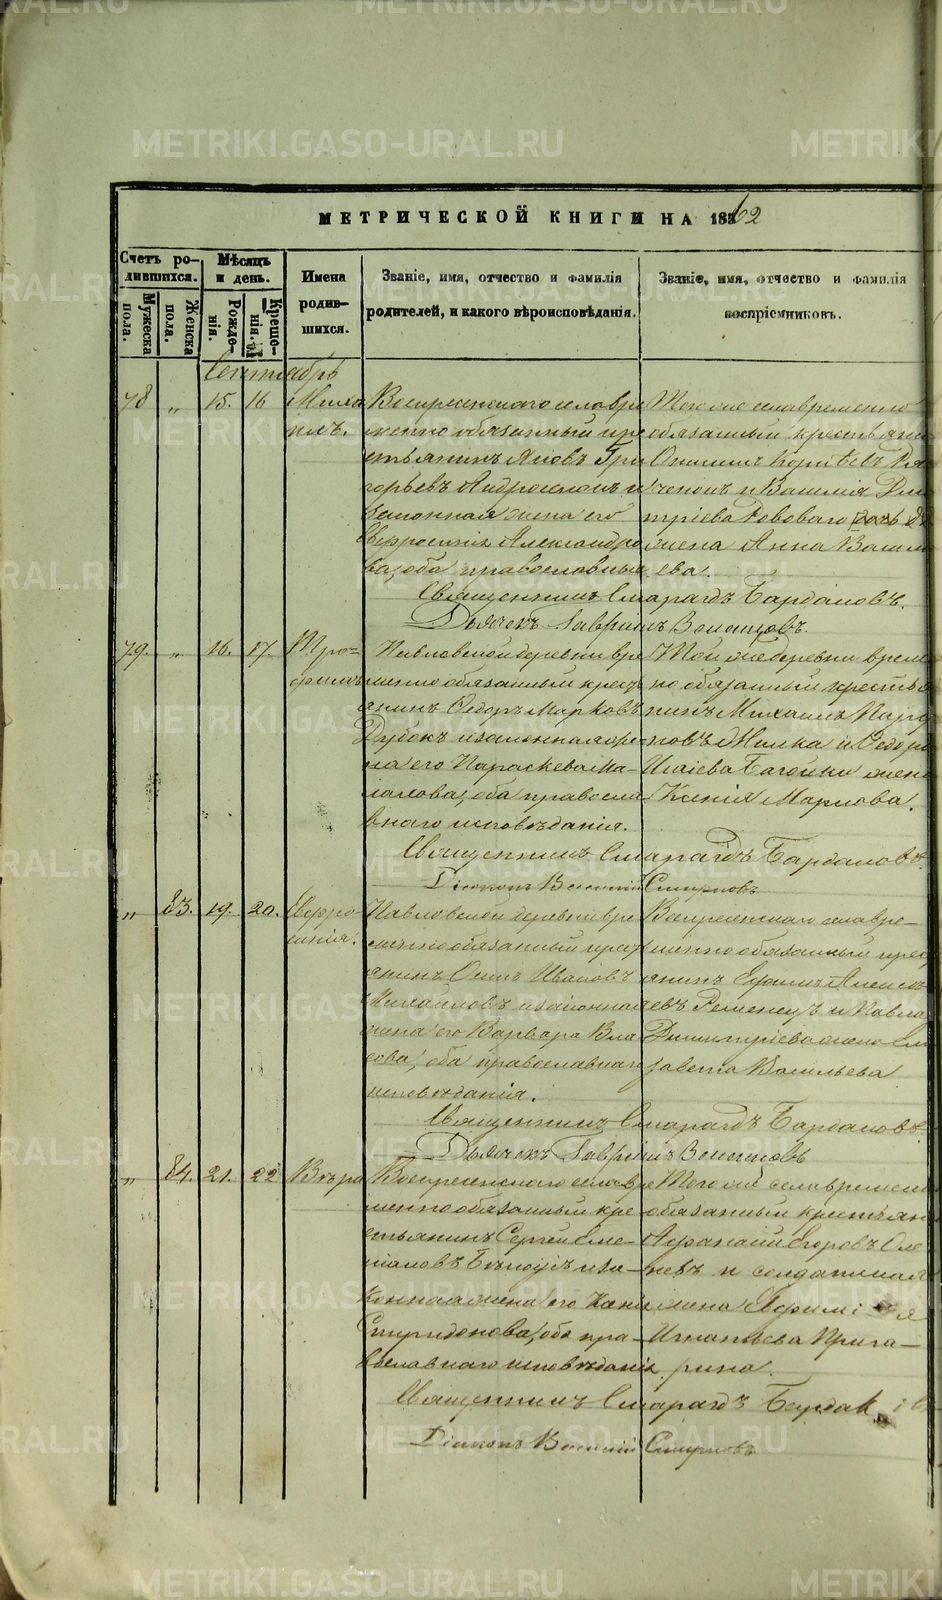 МЕТРИЧЕСКОЙ КНИГИ НА 1862
Счетъ родившихся.
Мужеска пола.
Женска пола.
Мѣсяцъ и день.
Рожденія.
Крещенія.
Имена родившихся.
Званіе, имя, отчество и фамилія родителей, и какого вѣроисповѣданія.
Званіе, имя, отчество и фамилія воспріемниковъ.
Сентябрь
78 „ 15. 16 Миха
илъ.
Воскресенскаго села вре
менно обязанный кре
стьянинъ Яковъ Гри
горьевъ и
законная жена его
Евфросинія Александро
ва, оба православные
Того же села временно
обязанный крестьян
и Василія Дми
тріева жена Анна Василь
ева.
Священникъ Смарагдъ Бардаковъ.
Дьячекъ Гавріилъ
79. „ 16. 17. Тро=
фимъ
Павловской деревни вре
менно обязанный крест
янинъ Ѳедоръ Марковъ
Дубокъ и законная же
на его Параскева Ма-
лахова, оба правосла
внаго исповѣданія.
Той же деревни време
но обязанный крестья
нинъ Михаилъ
и Ѳедора
Исаіева жена
Ксенія Маркова.
Священникъ Смарагдъ Бардаковъ
Діаконъ Василій Смирновъ
„ 83. 19. 20. Евфро
синія.
Павловской деревни вре
менно обязанный крест
янинъ Осипъ Ивановъ
Михайловъ и законная
жена его Варвара Вла
сова, оба православнаго
исповѣданія.
Воскресенскаго села вре-
менно обязанный крест
янинъ Ефимъ Алексѣ
евъ Ременецъ и Павла
Димитріева жена Ели
завета Васильева
Священникъ Смарагдъ Бардаковъ
Дьячекъ Гавріилъ
„ 84. 21. 22 Вѣра
Воскресенскаго села вре
менно обязанный кре
стьянинъ Сергей Еме-
ліановъ и за-
конная жена его
Спиридонова, оба пра-
вославнаго исповѣданія
Того же села временно
обязанный крестьян
Афанасій Егоровъ
и солдатская
жена Евфимія
Игнатьева
Священникъ Смарагдъ Бардаковъ
Діаконъ Василій Смирновъ
METRIKI.GASO-URAL.RU